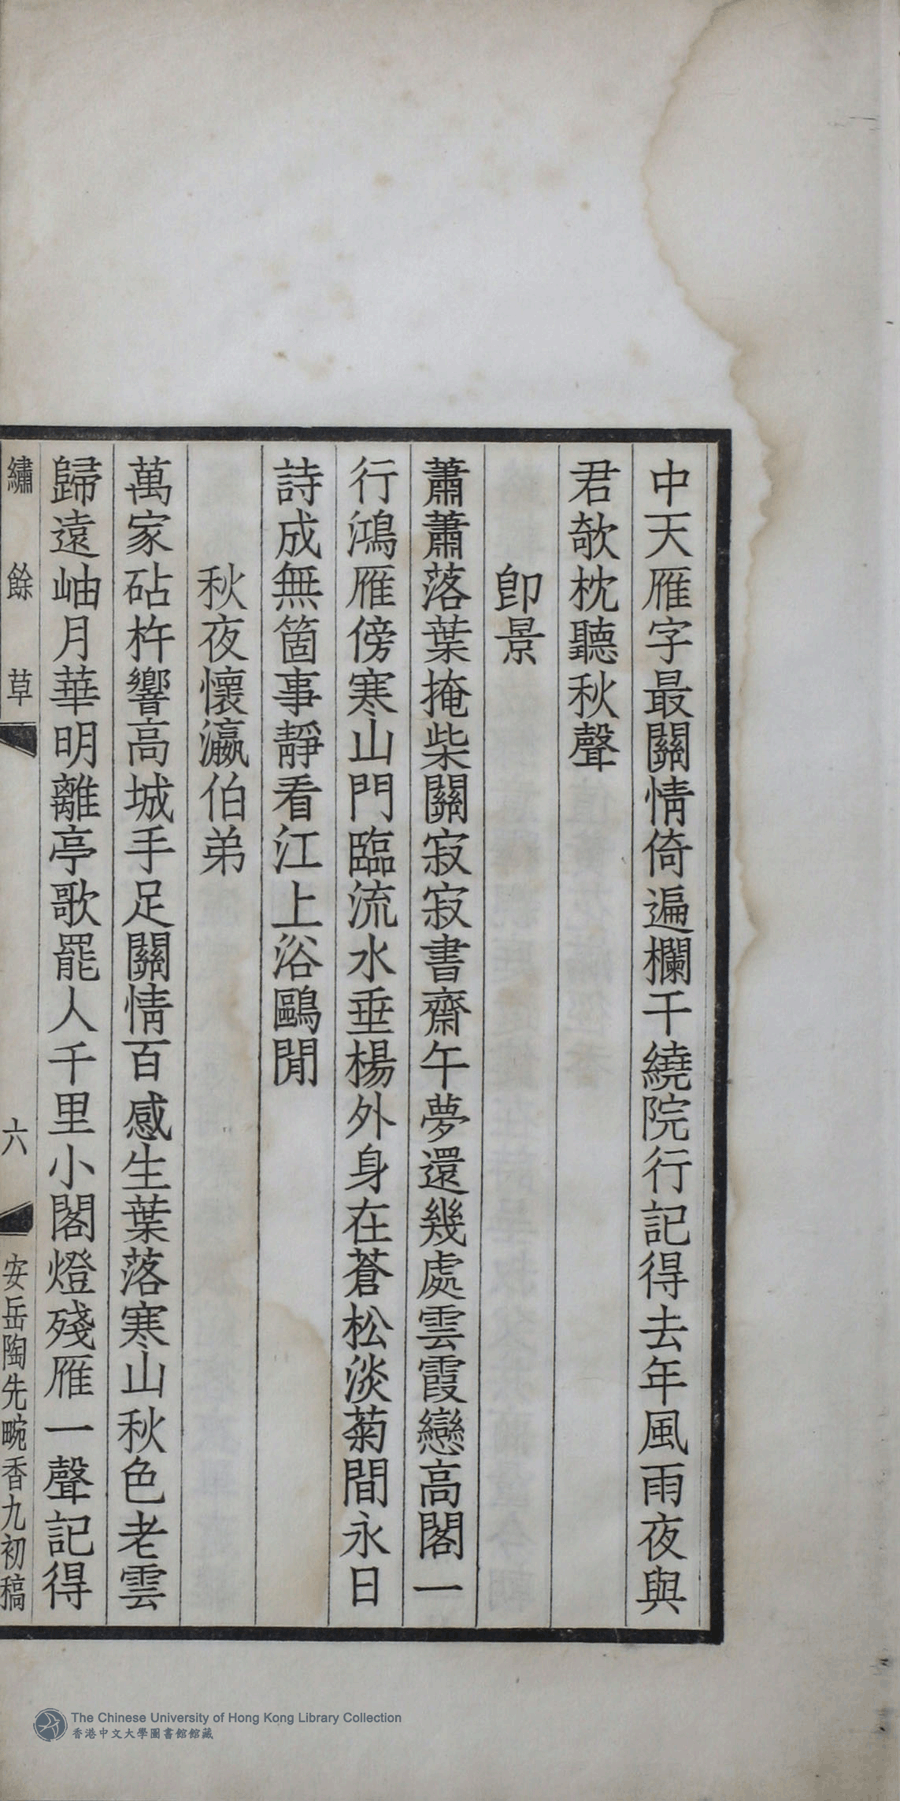 中天雁字最關情倚遍欄干繞院行記得去年風雨夜與
君欹枕聽秋聲
卽景
蕭蕭落葉掩柴關寂寂書齋午夢還幾處雲霞戀高閣一
行鴻雁傍寒山門臨流水垂楊外身在蒼松淡菊間永日
詩成無箇事靜看江上浴鷗閒
秋夜懷瀛伯弟
萬家砧杵響高城手足關情百感生葉落寒山秋色老雲
歸遠岫月華明離亭歌罷人千里小閣燈殘雁一聲記得
繡餘草 六 安岳陶先畹香九初稿
The Chinese University of Hong Kong Library Collection
香港中文大學圖書館館藏